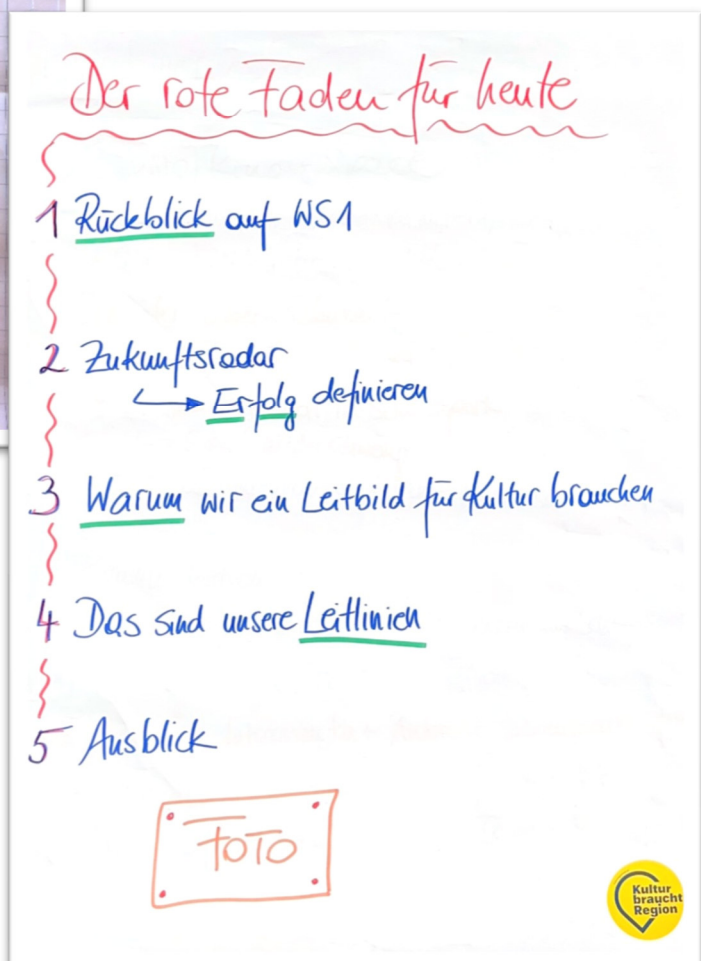 Der rote Faden für heute
1 Rückblick auf WS1
2 Zukunftsradar
Erfolg definieren
3 Warum wir ein Leitbild für Kultur brauchen
4 Das sind unsere Leitlinien
5 Ausblick
FOTO
Kultur
braucht
Region